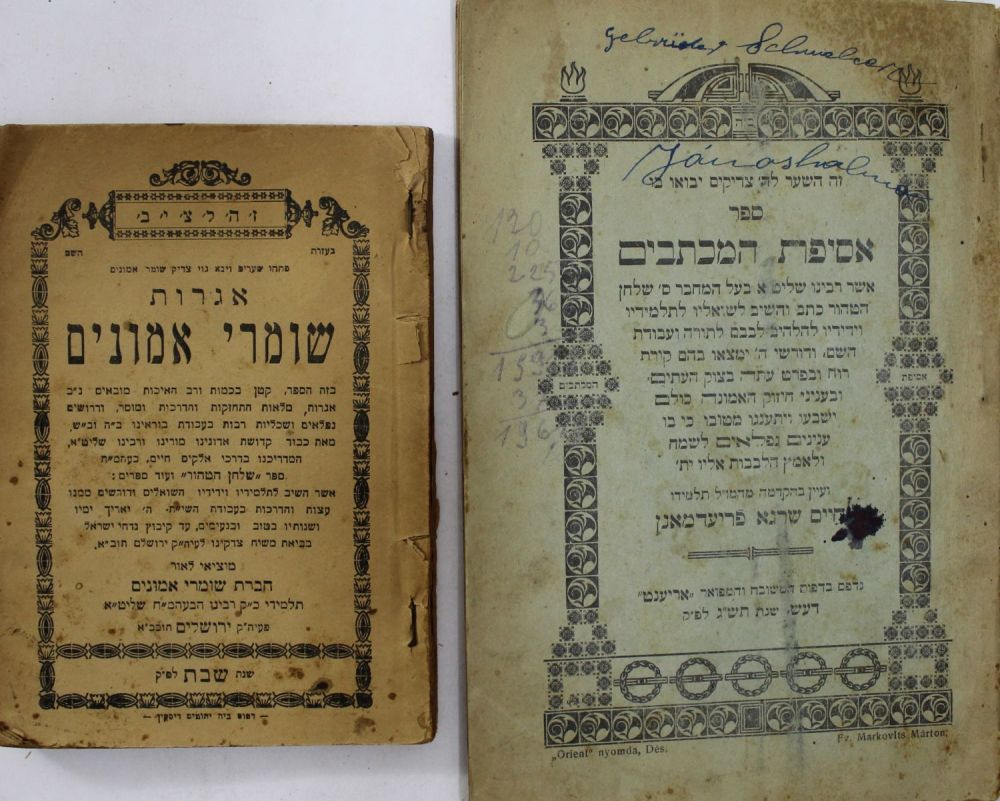 ז'ה'ל'צ'י'ב'
בעזרת השם
פתחו שערים ויבא גוי צדיק שומר אמונים
אגרות
שומרי אמונים
בזה הספר, קטן בכמות ורב האיכות מובאים נ"ב
אגרות, מלאות התחזקות והדרכות ומוסר, ודרושים
נפלאים ושכליות רבות בעבודת בוראינו ב"ה וב"ש,
מאת כבוד קדושת אדונינו מורינו ורבינו שליט"א,
המדריכנו בדרכי אלקים חיים, בעהמ"ח
ספר "שלחן הטהור" ועוד ספרים:
אשר השיב לתלמידיו וידידיו השואלים ודורשים ממנו
עצות והדרכות בעבודת השי"ת. ה' יאריך ימיו
ושנותיו בטוב ובנעימים, עד קיבוץ נדחי ישראל
בביאת משיח צדקינו לעיה"ק ירושלם תוב"א.
מוציאי לאור
חברת שומרי אמונים
תלמידי כ"ק רבינו הבעהמ"ח שליט"א
פעיה"ק ירושלים תובב"א
שנת שבת לפ"ק
– דפוס בית יתומים דיסקין –
Gebrüder
Jánoshalma
זה השער לה' צדיקים יבואו בו
ספר
אסיפת המכתבים
אשר רבינו שליט"א בעל המחבר ס' שלחן
הטהור כתב והשיב לשואליו לתלמידיו
וידידיו להלהיב לבבם לתורה ועבודת
השם, ודורשי ה' ימצאו בהם קורת
רוח ובפרט עתה בצוק העתים,
ובעניני חיזוק האמונה כולם
ישבעו ויתענגו מטובו כי בו
ענינים נפלאים לשמח
ולאמץ הלבבות אליו ית'
אסיפת
המכתבים
ועיין בהקדמה מהמו"ל תלמידו
חיים שרגא פריעדמאנן
נדפס בדפוס המשובח והמפואר "אריענט"
דעש, שנת תש"ג לפ"ק
120
10
225
36
3
„Orient" nyomda, Dés.
Fv. Markovits Márton.